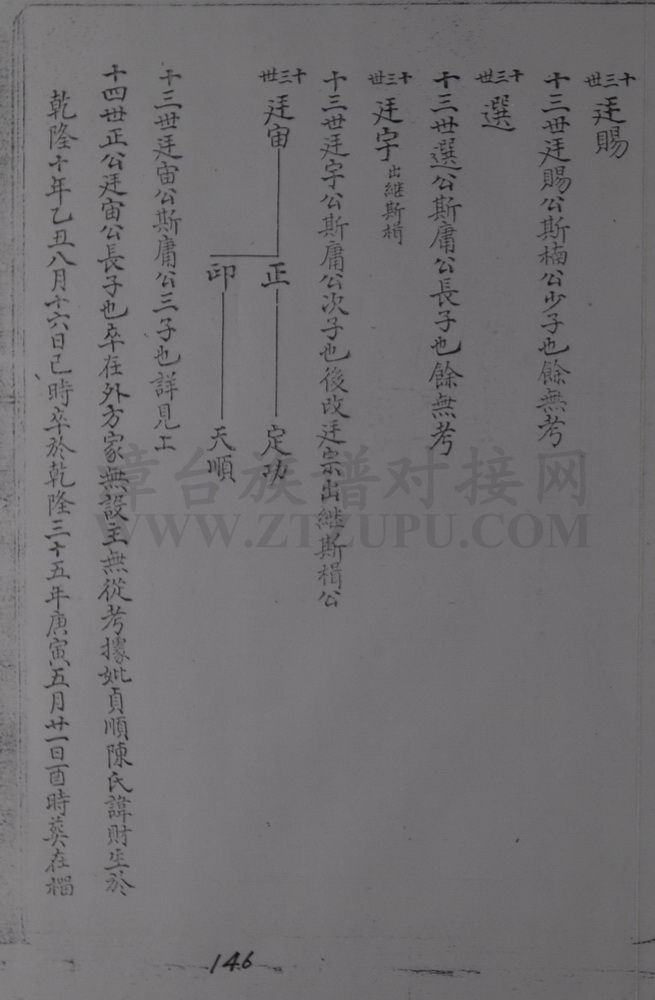 十三世 廷賜
十三世廷賜公斯楠公少子也餘無考
十三世 選
十三世選公斯庸公長子也餘無考
十三世 廷宇 出継斯楫
十三世廷宇公斯庸公次子也後改廷宗出継斯楫公
十三世 廷宙
正 定功
卬 天順
十三世廷宙公斯庸公三子也詳見上
十四世正公廷宙公長子也卒在外方家無設主無從考據妣貞順陳氏諱財生於
乾隆十年乙丑八月十六日己時卒於乾隆三十五年庚寅五月廿一日酉時葬在
146
漳台族谱对接网
WWW.ZTZUPU.COM